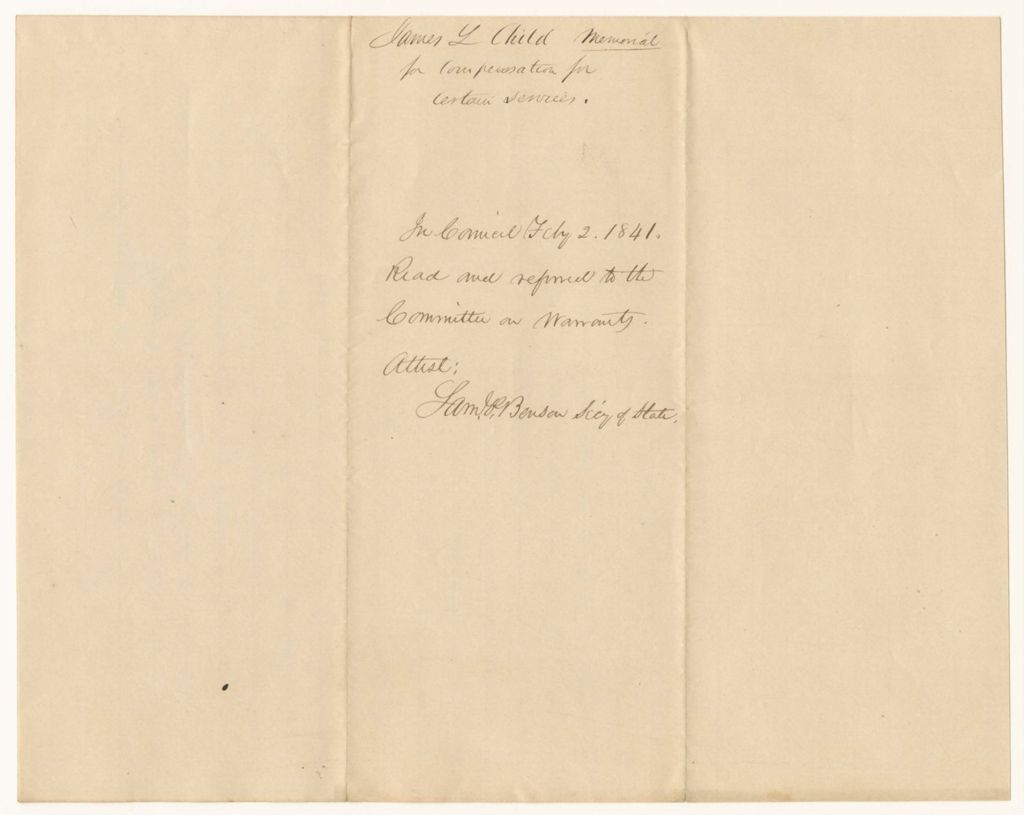 James L Child Memorial
for Compensation for
certain services.
In Council Feby 2. 1841.
Read and referred to the
Committee on Warrants.
Attest:
Saml P. Benson Secy of State.